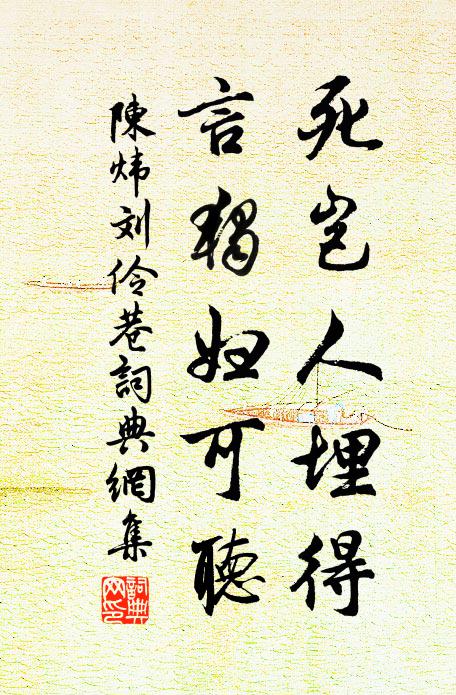 死岂人埋得
言獨妇可聽
陳炜刘伶巷詞典網集
詞典网印